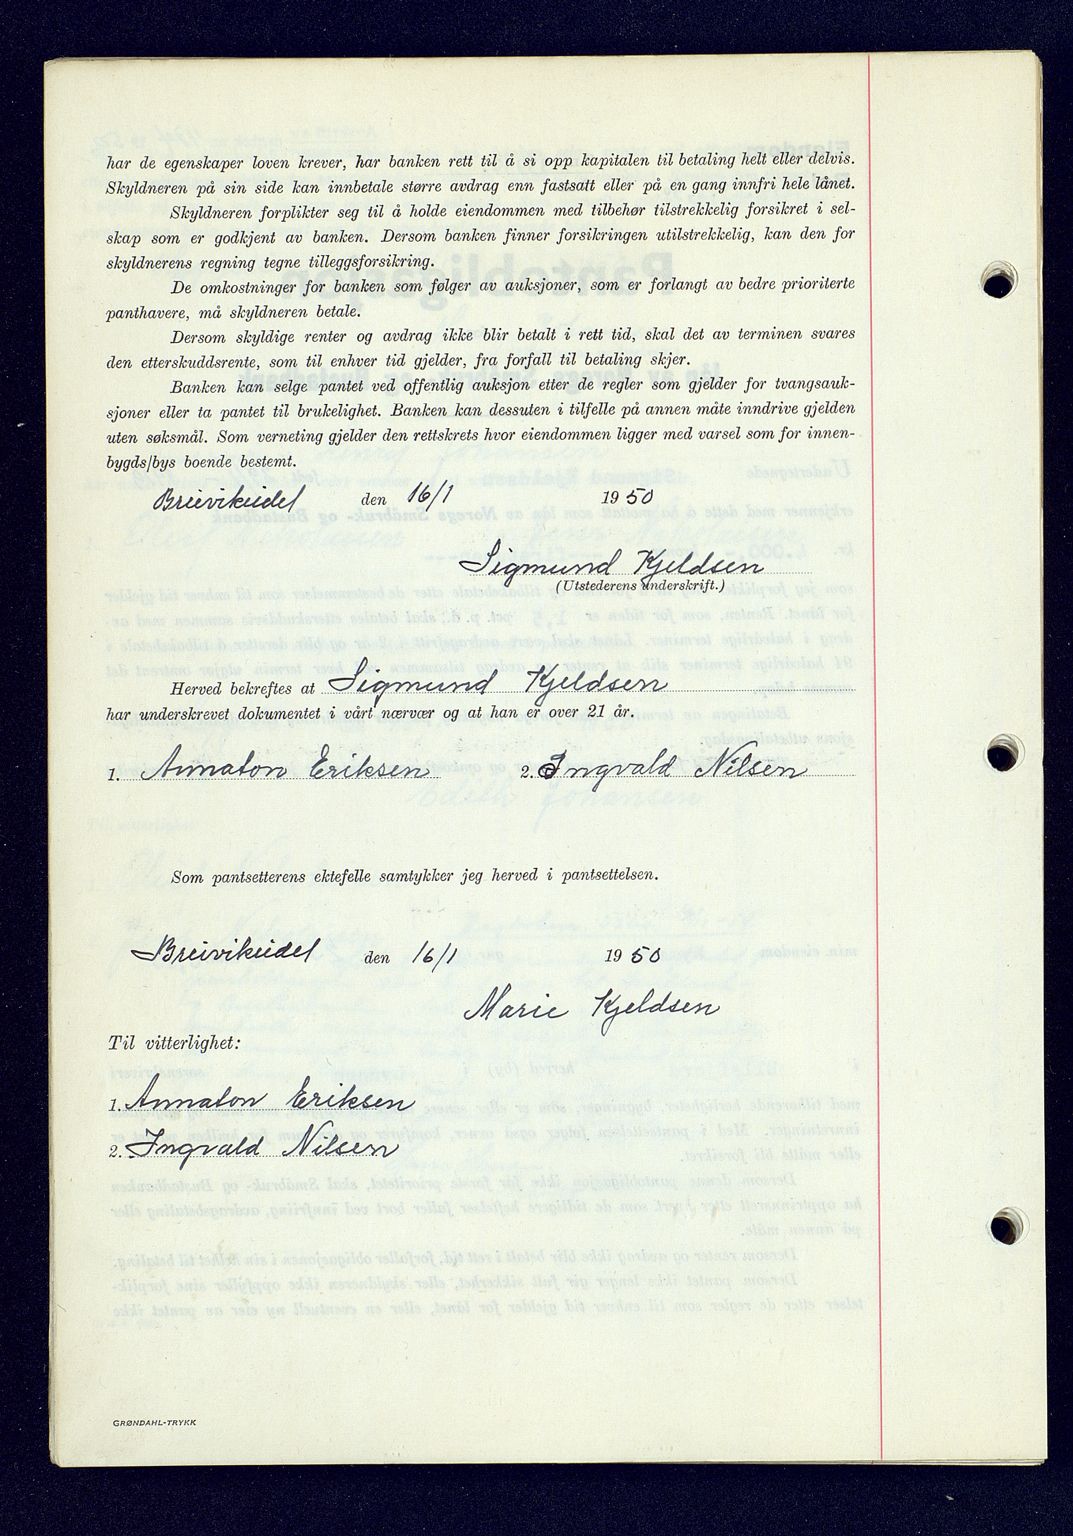 har de egenskaper loven krever, har banken rett til å si opp kapitalen til betaling helt eller delvis.
Skyldneren på sin side kan innbetale større avdrag enn fastsatt eller på en gang innfri hele lånet.
Skyldneren forplikter seg til å holde eiendommen med tilbehør tilstrekkelig forsikret i sel-
skap som er godkjent av banken. Dersom banken finner forsikringen utilstrekkelig, kan den for
skyldnerens regning tegne tilleggsforsikring.
De omkostninger for banken som følger av auksjoner, som er forlangt av bedre prioriterte
panthavere, må skyldneren betale.
Dersom skyldige renter og avdrag ikke blir betalt i rett tid, skal det av terminen svares
den etterskuddsrente, som til enhver tid gjelder, fra forfall til betaling skjer.
Banken kan selge pantet ved offentlig auksjon etter de regler som gjelder for tvangsauk-
sjoner eller ta pantet til brukelighet. Banken kan dessuten i tilfelle på annen måte inndrive gjelden
uten søksmål. Som verneting gjelder den rettskrets hvor eiendommen ligger med varsel som for innen-
bygds/bys boende bestemt.
Breivikeidet den 16/1 1950
Sigmund Kjeldsen
(Utstederens underskrift.)
Herved bekreftes at Sigmund Kjeldsen
har underskrevet dokumentet i vårt nærvær og at han er over 21 år.
1. Annaton Eriksen 2. Ingvald Nilsen
Som pantsetterens ektefelle samtykker jeg herved i pantsettelsen.
Breivikeidet den 16/1 1950
Marie Kjeldsen
Til vitterlighet:
1. Annaton Eriksen
2. Ingvald Nilsen
GRØNDAHL-TRYKK